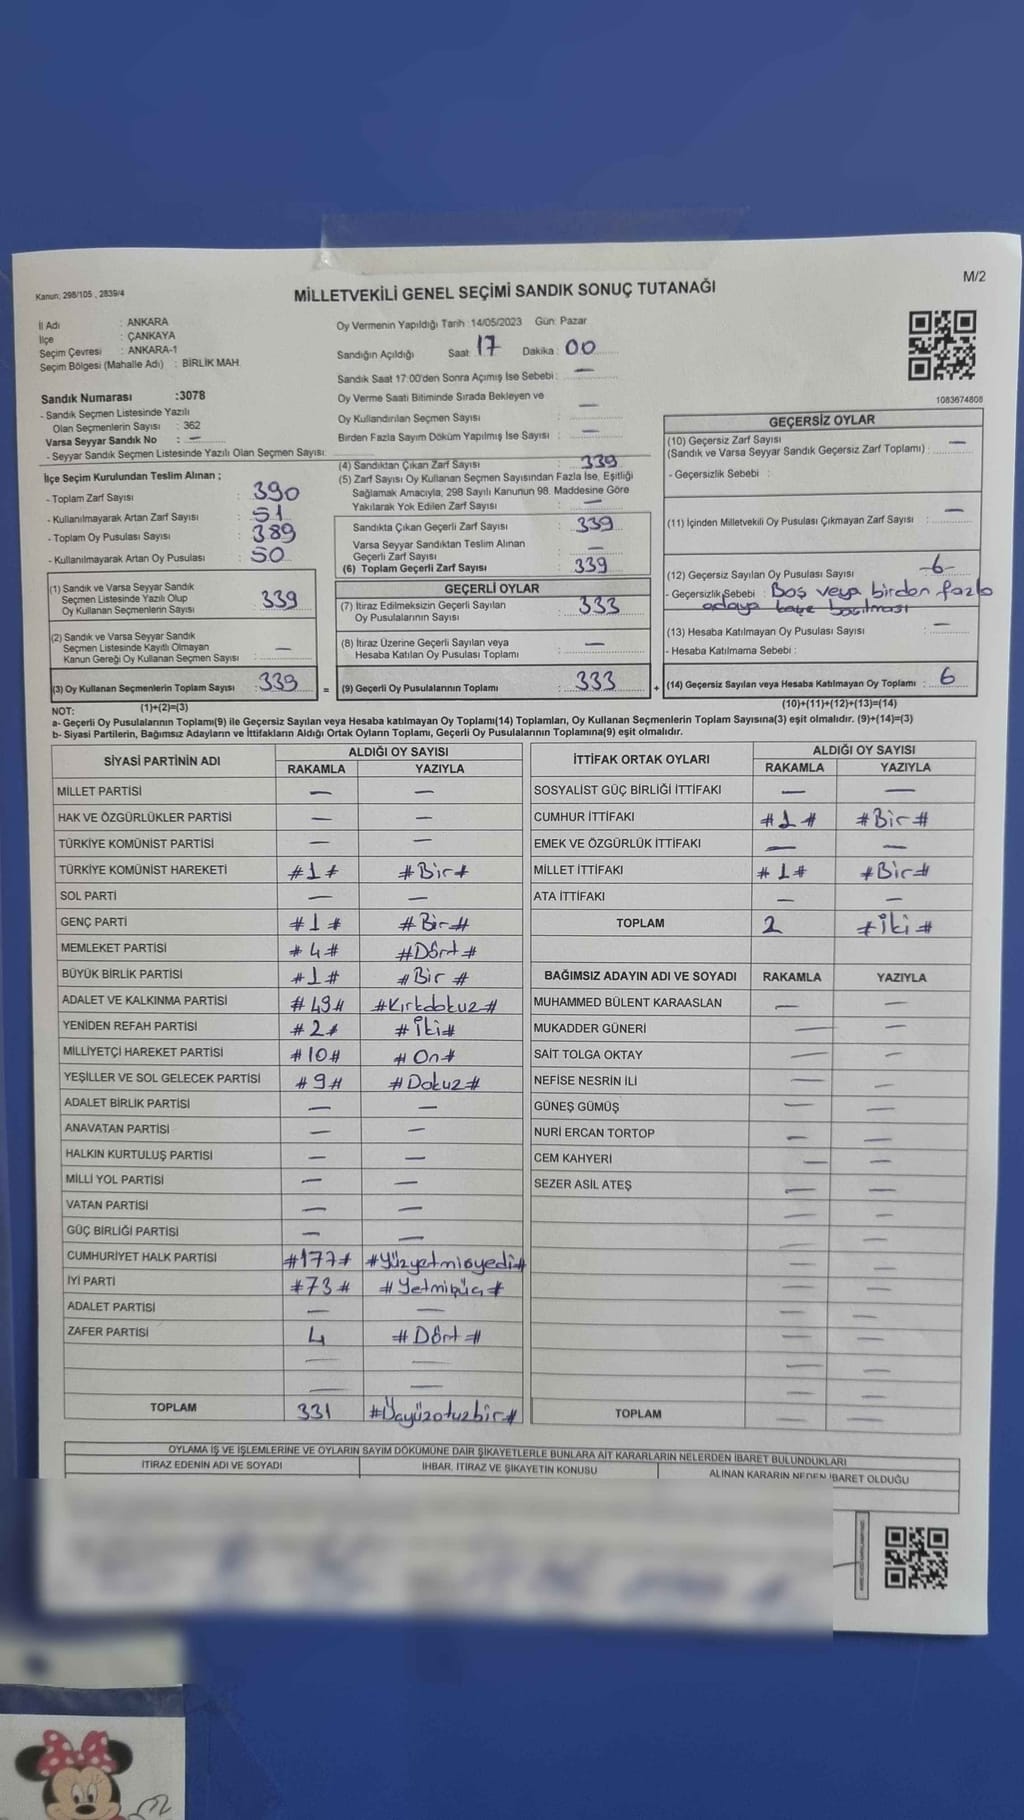 M/2
Kanun, 298/105 , 2839/4
MİLLETVEKİLİ GENEL SEÇİMİ SANDIK SONUÇ TUTANAĞI
İl Adı : ANKARA
İlçe : ÇANKAYA
Seçim Çevresi : ANKARA-1
Seçim Bölgesi (Mahalle Adı) : BİRLİK MAH.
Sandık Numarası :3078
- Sandık Seçmen Listesinde Yazılı
Olan Seçmenlerin Sayısı : 362
Varsa Seyyar Sandık No : —
- Seyyar Sandık Seçmen Listesinde Yazılı Olan Seçmen Sayısı:
İlçe Seçim Kurulundan Teslim Alınan ;
- Toplam Zarf Sayısı : 390
- Kullanılmayarak Artan Zarf Sayısı : 51
- Toplam Oy Pusulası Sayısı : 389
- Kullanılmayarak Artan Oy Pusulası : 50
(1) Sandık ve Varsa Seyyar Sandık
Seçmen Listesinde Yazılı Olup
Oy Kullanan Seçmenlerin Sayısı : 339
(2) Sandık ve Varsa Seyyar Sandık
Seçmen Listesinde Kayıtlı Olmayan
Kanun Gereği Oy Kullanan Seçmen Sayısı : —
(3) Oy Kullanan Seçmenlerin Toplam Sayısı : 339
(1)+(2)=(3)
Oy Vermenin Yapıldığı Tarih :14/05/2023 Gün: Pazar
Sandığın Açıldığı Saat: 17 Dakika : 00
Sandık Saat 17:00'den Sonra Açımış İse Sebebi : —
Oy Verme Saati Bitiminde Sırada Bekleyen ve
Oy Kullandırılan Seçmen Sayısı : —
Birden Fazla Sayım Döküm Yapılmış İse Sayısı : —
(4) Sandıktan Çıkan Zarf Sayısı : 339
(5) Zarf Sayısı Oy Kullanan Seçmen Sayısından Fazla İse, Eşitliği
Sağlamak Amacıyla, 298 Sayılı Kanunun 98. Maddesine Göre
Yakılarak Yok Edilen Zarf Sayısı : —
Sandıkta Çıkan Geçerli Zarf Sayısı : 339
Varsa Seyyar Sandıktan Teslim Alınan
Geçerli Zarf Sayısı : —
(6) Toplam Geçerli Zarf Sayısı : 339
GEÇERLİ OYLAR
(7) İtiraz Edilmeksizin Geçerli Sayılan
Oy Pusulalarının Sayısı : 333
(8) İtiraz Üzerine Geçerli Sayılan veya
Hesaba Katılan Oy Pusulası Toplamı : —
= (9) Geçerli Oy Pusulalarının Toplamı : 333
1083674808
GEÇERSİZ OYLAR
(10) Geçersiz Zarf Sayısı
(Sandık ve Varsa Seyyar Sandık Geçersiz Zarf Toplamı) : —
- Geçersizlik Sebebi :
(11) İçinden Milletvekili Oy Pusulası Çıkmayan Zarf Sayısı : —
(12) Geçersiz Sayılan Oy Pusulası Sayısı : -6-
- Geçersizlik Sebebi : Boş veya birden fazla
adaya basılması
(13) Hesaba Katılmayan Oy Pusulası Sayısı : —
- Hesaba Katılmama Sebebi :
+ (14) Geçersiz Sayılan veya Hesaba Katılmayan Oy Toplamı : 6
(10)+(11)+(12)+(13)=(14)
NOT:
a- Geçerli Oy Pusulalarının Toplamı(9) ile Geçersiz Sayılan veya Hesaba katılmayan Oy Toplamı(14) Toplamları, Oy Kullanan Seçmenlerin Toplam Sayısına(3) eşit olmalıdır. (9)+(14)=(3)
b- Siyasi Partilerin, Bağımsız Adayların ve İttifakların Aldığı Ortak Oyların Toplamı, Geçerli Oy Pusulalarının Toplamına(9) eşit olmalıdır.
SİYASİ PARTİNİN ADI ALDIĞI OY SAYISI
RAKAMLA YAZIYLA
MİLLET PARTİSİ — —
HAK VE ÖZGÜRLÜKLER PARTİSİ — —
TÜRKİYE KOMÜNİST PARTİSİ — —
TÜRKİYE KOMÜNİST HAREKETİ #1# #Bir#
SOL PARTİ — —
GENÇ PARTİ #1# #Bir#
MEMLEKET PARTİSİ #4# #Dört#
BÜYÜK BİRLİK PARTİSİ #1# #Bir#
ADALET VE KALKINMA PARTİSİ #49# #Kırkdokuz#
YENİDEN REFAH PARTİSİ #2# #İki#
MİLLİYETÇİ HAREKET PARTİSİ #10# #On#
YEŞİLLER VE SOL GELECEK PARTİSİ #9# #Dokuz#
ADALET BİRLİK PARTİSİ — —
ANAVATAN PARTİSİ — —
HALKIN KURTULUŞ PARTİSİ — —
MİLLİ YOL PARTİSİ — —
VATAN PARTİSİ — —
GÜÇ BİRLİĞİ PARTİSİ — —
CUMHURİYET HALK PARTİSİ #177# #Yüzyetmişyedi#
İYİ PARTİ #73# #Yetmişüç#
ADALET PARTİSİ — —
ZAFER PARTİSİ 4 #Dört#
— —
— —
TOPLAM 331 #Üçyüzotuzbir#
İTTİFAK ORTAK OYLARI ALDIĞI OY SAYISI
RAKAMLA YAZIYLA
SOSYALİST GÜÇ BİRLİĞİ İTTİFAKI — —
CUMHUR İTTİFAKI #1# #Bir#
EMEK VE ÖZGÜRLÜK İTTİFAKI — —
MİLLET İTTİFAKI #1# #Bir#
ATA İTTİFAKI — —
TOPLAM 2 #İki#
BAĞIMSIZ ADAYIN ADI VE SOYADI RAKAMLA YAZIYLA
MUHAMMED BÜLENT KARAASLAN — —
MUKADDER GÜNERİ — —
SAİT TOLGA OKTAY — —
NEFİSE NESRİN İLİ — —
GÜNEŞ GÜMÜŞ — —
NURİ ERCAN TORTOP — —
CEM KAHYERİ — —
SEZER ASİL ATEŞ — —
— —
— —
— —
— —
— —
— —
— —
— —
TOPLAM — —
OYLAMA İŞ VE İŞLEMLERİNE VE OYLARIN SAYIM DÖKÜMÜNE DAİR ŞİKAYETLERLE BUNLARA AİT KARARLARIN NELERDEN İBARET BULUNDUKLARI
İTİRAZ EDENİN ADI VE SOYADI İHBAR, İTİRAZ VE ŞİKAYETİN KONUSU ALINAN KARARIN NEDEN İBARET OLDUĞU